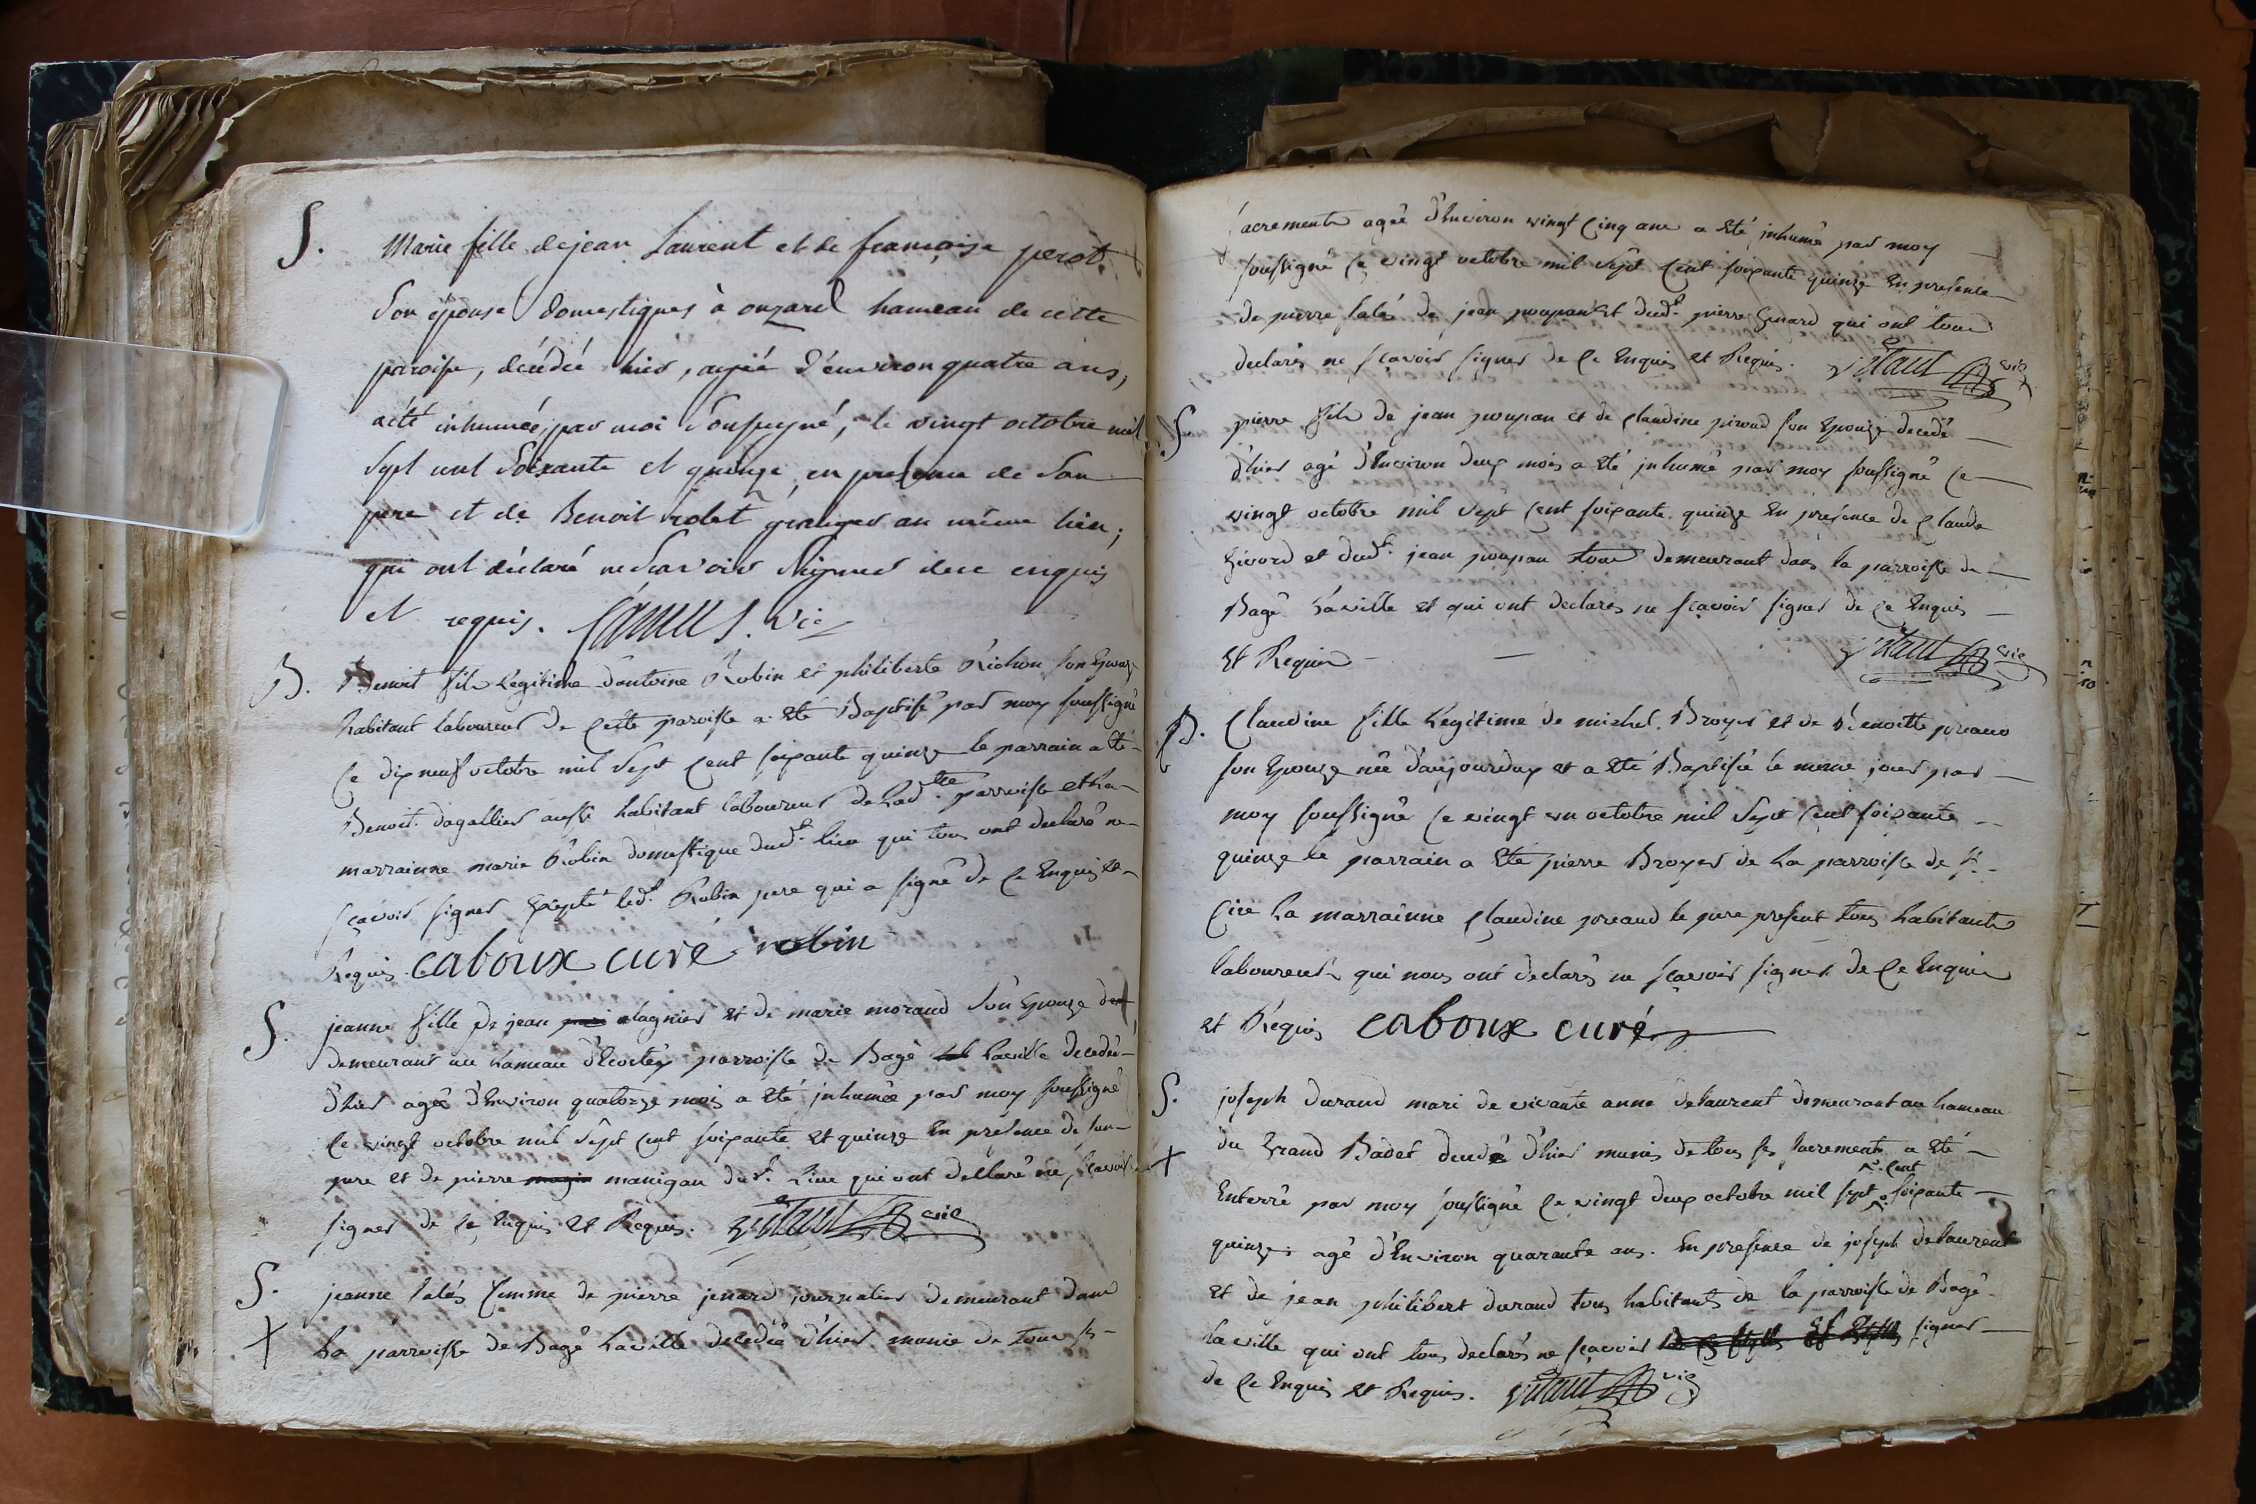 S. Marie fille de jean Laurent et de françoise perot
Son épouse domestiques à onzard hameau de cette
paroisse, décédée hier, agée d'environ quatre ans,
a été inhumée, par moi Soussigné, le vingt octobre mil
Sept cent Soixante et quinze, en presence de Son
pere et de Benoit robet granger au même lieu;
qui ont déclaré ne Scavoir Signer de ce enquis
et requis. Camus. vic
B. Benoit fils Legitime d'antoine Robin et philiberte Richon son Epouze
habitant laboureur de cette paroisse a eté Baptisé par moy soussigné
ce dix neuf octobre mil Sept cent soixante quinze le parrain a eté
Benoit dagallier aussi habitant laboureur de lad.tte parroisse et la
marrainne marie Robin domestique dud.t lieu qui tous ont declaré ne
sçavoir signer Excepté led.t Robin pere qui a signé de ce Enquis et
Requis. caboux curé robin
S. jeanne fille de jean alagnier et de marie morand son Epouze
demeurant au hameau d'Ecortey parroisse de Bagé Laville decedée
d'hier agée d'Environ quatorze mois a eté inhumée par moy soussigné
ce vingt octobre mil Sept cent soixante et quinze En presence de son
pere et de pierre manigau dud.t Lieu qui ont declaré ne sçavoir
signer de ce Enquis et Requis. vic
S. jeanne Salés femme de pierre jenard journalier demeurant dans
+ La parroisse de Bagé Laville decedée d'hier munie de tous ses
sacrements agée d'Environ vingt Cinq ans a eté inhumée par moy
soussigné ce vingt octobre mil Sept Cent soixante quinze En presence
de pierre Salés de jean poupan Et dud.t pierre Genard qui ont tous
declarés ne sçavoir signer de ce Enquis et Requis. vic
S. pierre fils de jean poupan et de claudine piroud son Epouze decedé
d'hier agé d'Environ deux mois a eté inhumé par moy soussigné ce
vingt octobre mil Sept Cent soixante quinze En présence de Claude
Givord et dud.t jean poupan tous demeurant dans la parroisse de
Bagé Laville et qui ont declarés ne sçavoir signer de ce Enquis
et Requis vic
B. Claudine fille Legitime de michel Broyer et de Benoitte
son Epouze née d'aujourduy et a eté Baptisée le meme jour par
moy soussigné ce vingt un octobre mil Sept Cent soixante
quinze le parrain a eté pierre Broyer de La parroisse de St
Cire La marrainne Claudine le pere present tous habitants
laboureurs qui nous ont declarés ne sçavoir signer de ce Enquis
et Requis caboux curé
S. joseph durand mari de vivante anne delaurent demeurant au hameau
du Grand Badet decedé d'hier munis de tous ses sacrements a eté
+ Enterré par moy soussigné ce vingt deux octobre mil sept cent soixante
quinze agé d'Environ quarante ans. En presence de joseph delaurent
et de jean philibert durand tous habitants de la parroisse de Bagé
La ville qui ont tous declarés ne sçavoir signer
de ce Enquis et Requis. vic